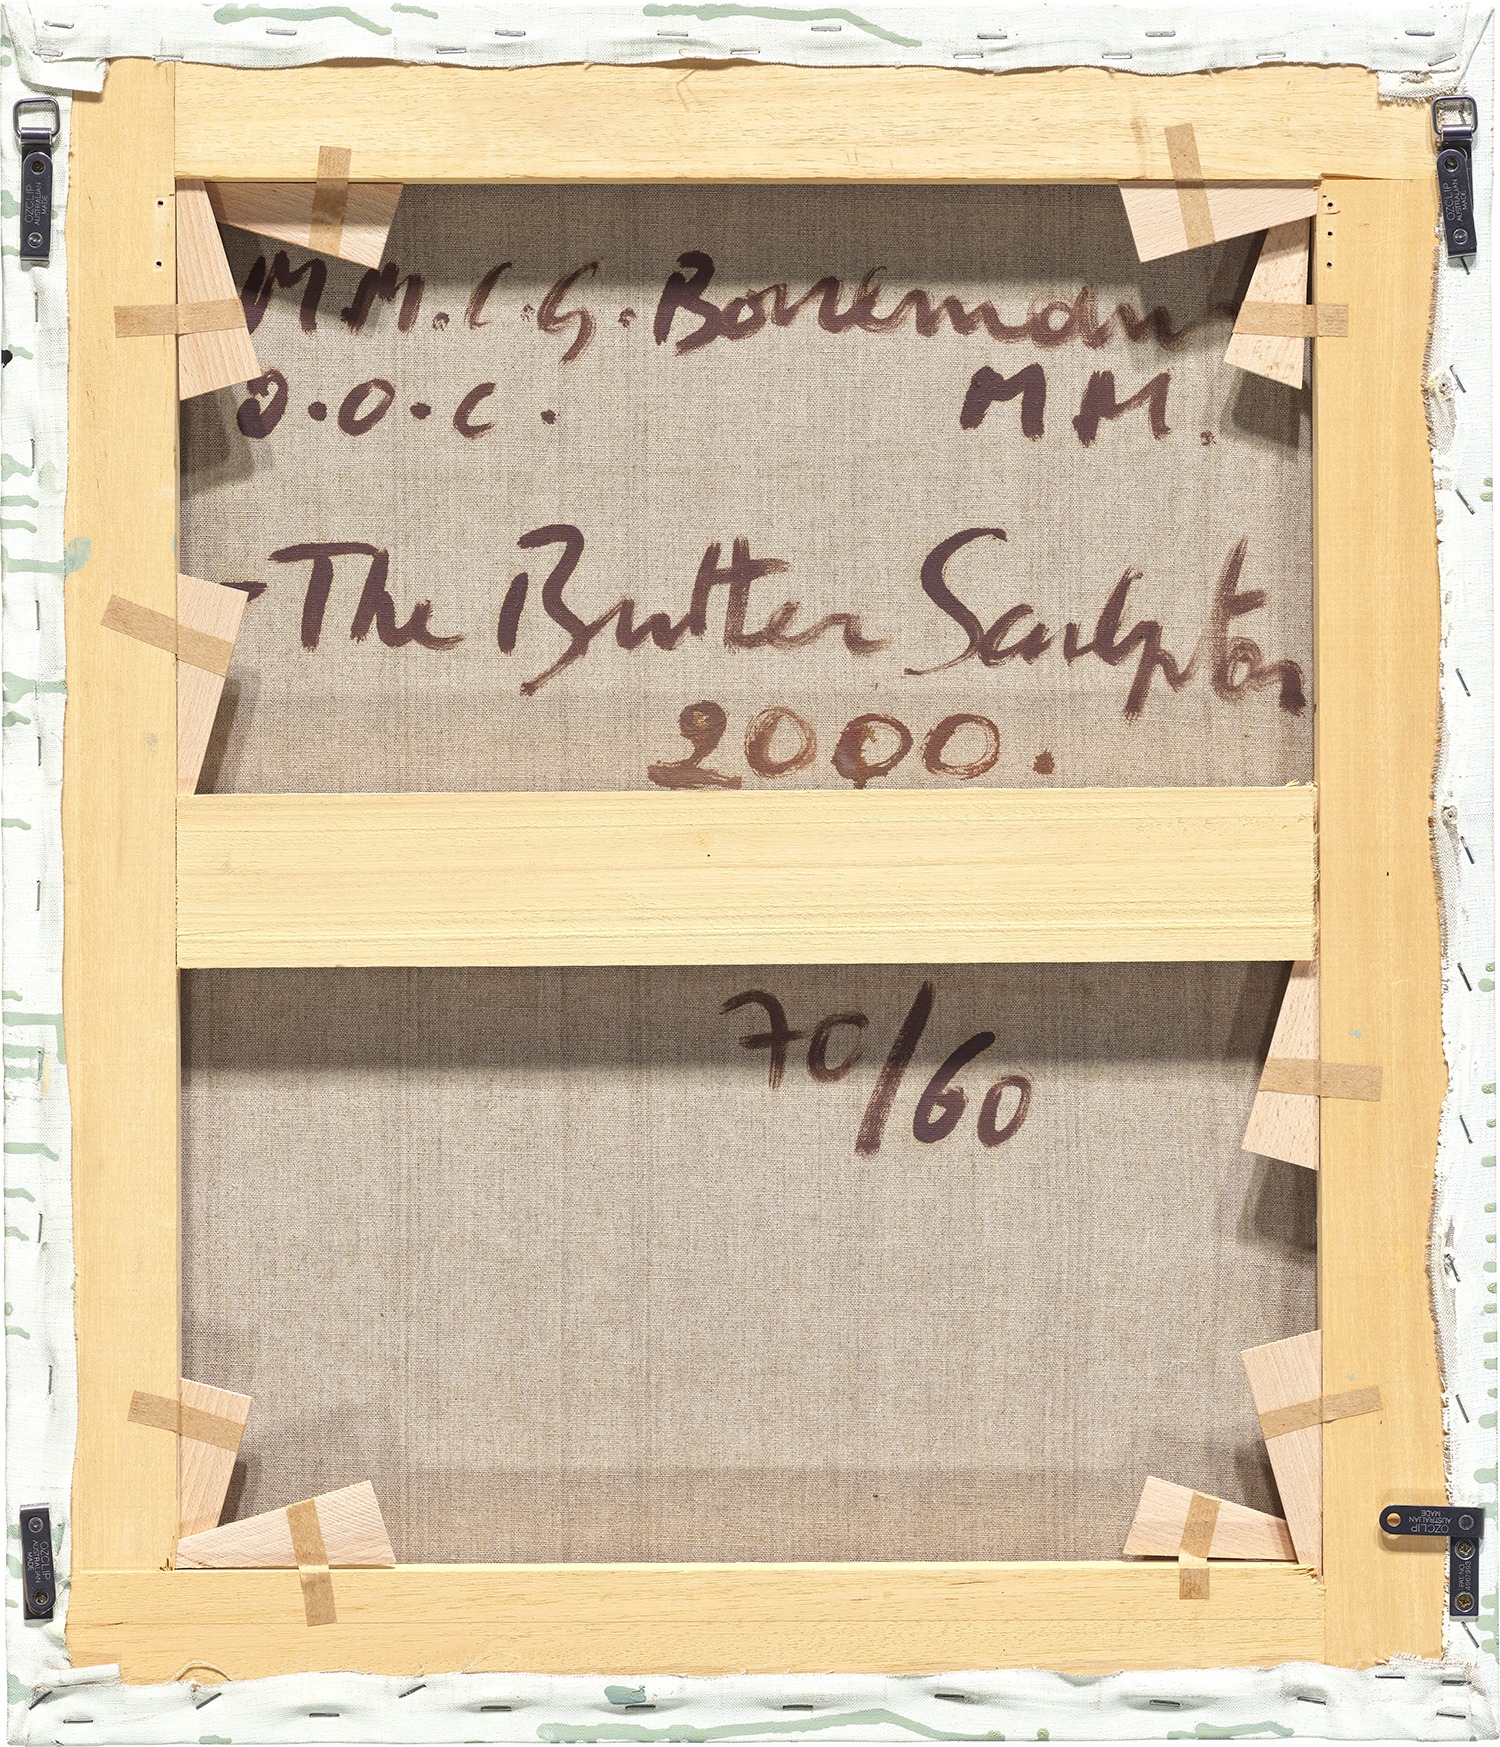 M.M.C.G. Borreman
D.O.C. MM.
- The Butter Sculptor
2000.
70/60
OZCLIP
AUSTRALIAN
MADE
OZCLIP
AUSTRALIAN
MADE
OZCLIP
AUSTRALIAN
MADE
OZCLIP
AUSTRALIAN
MADE